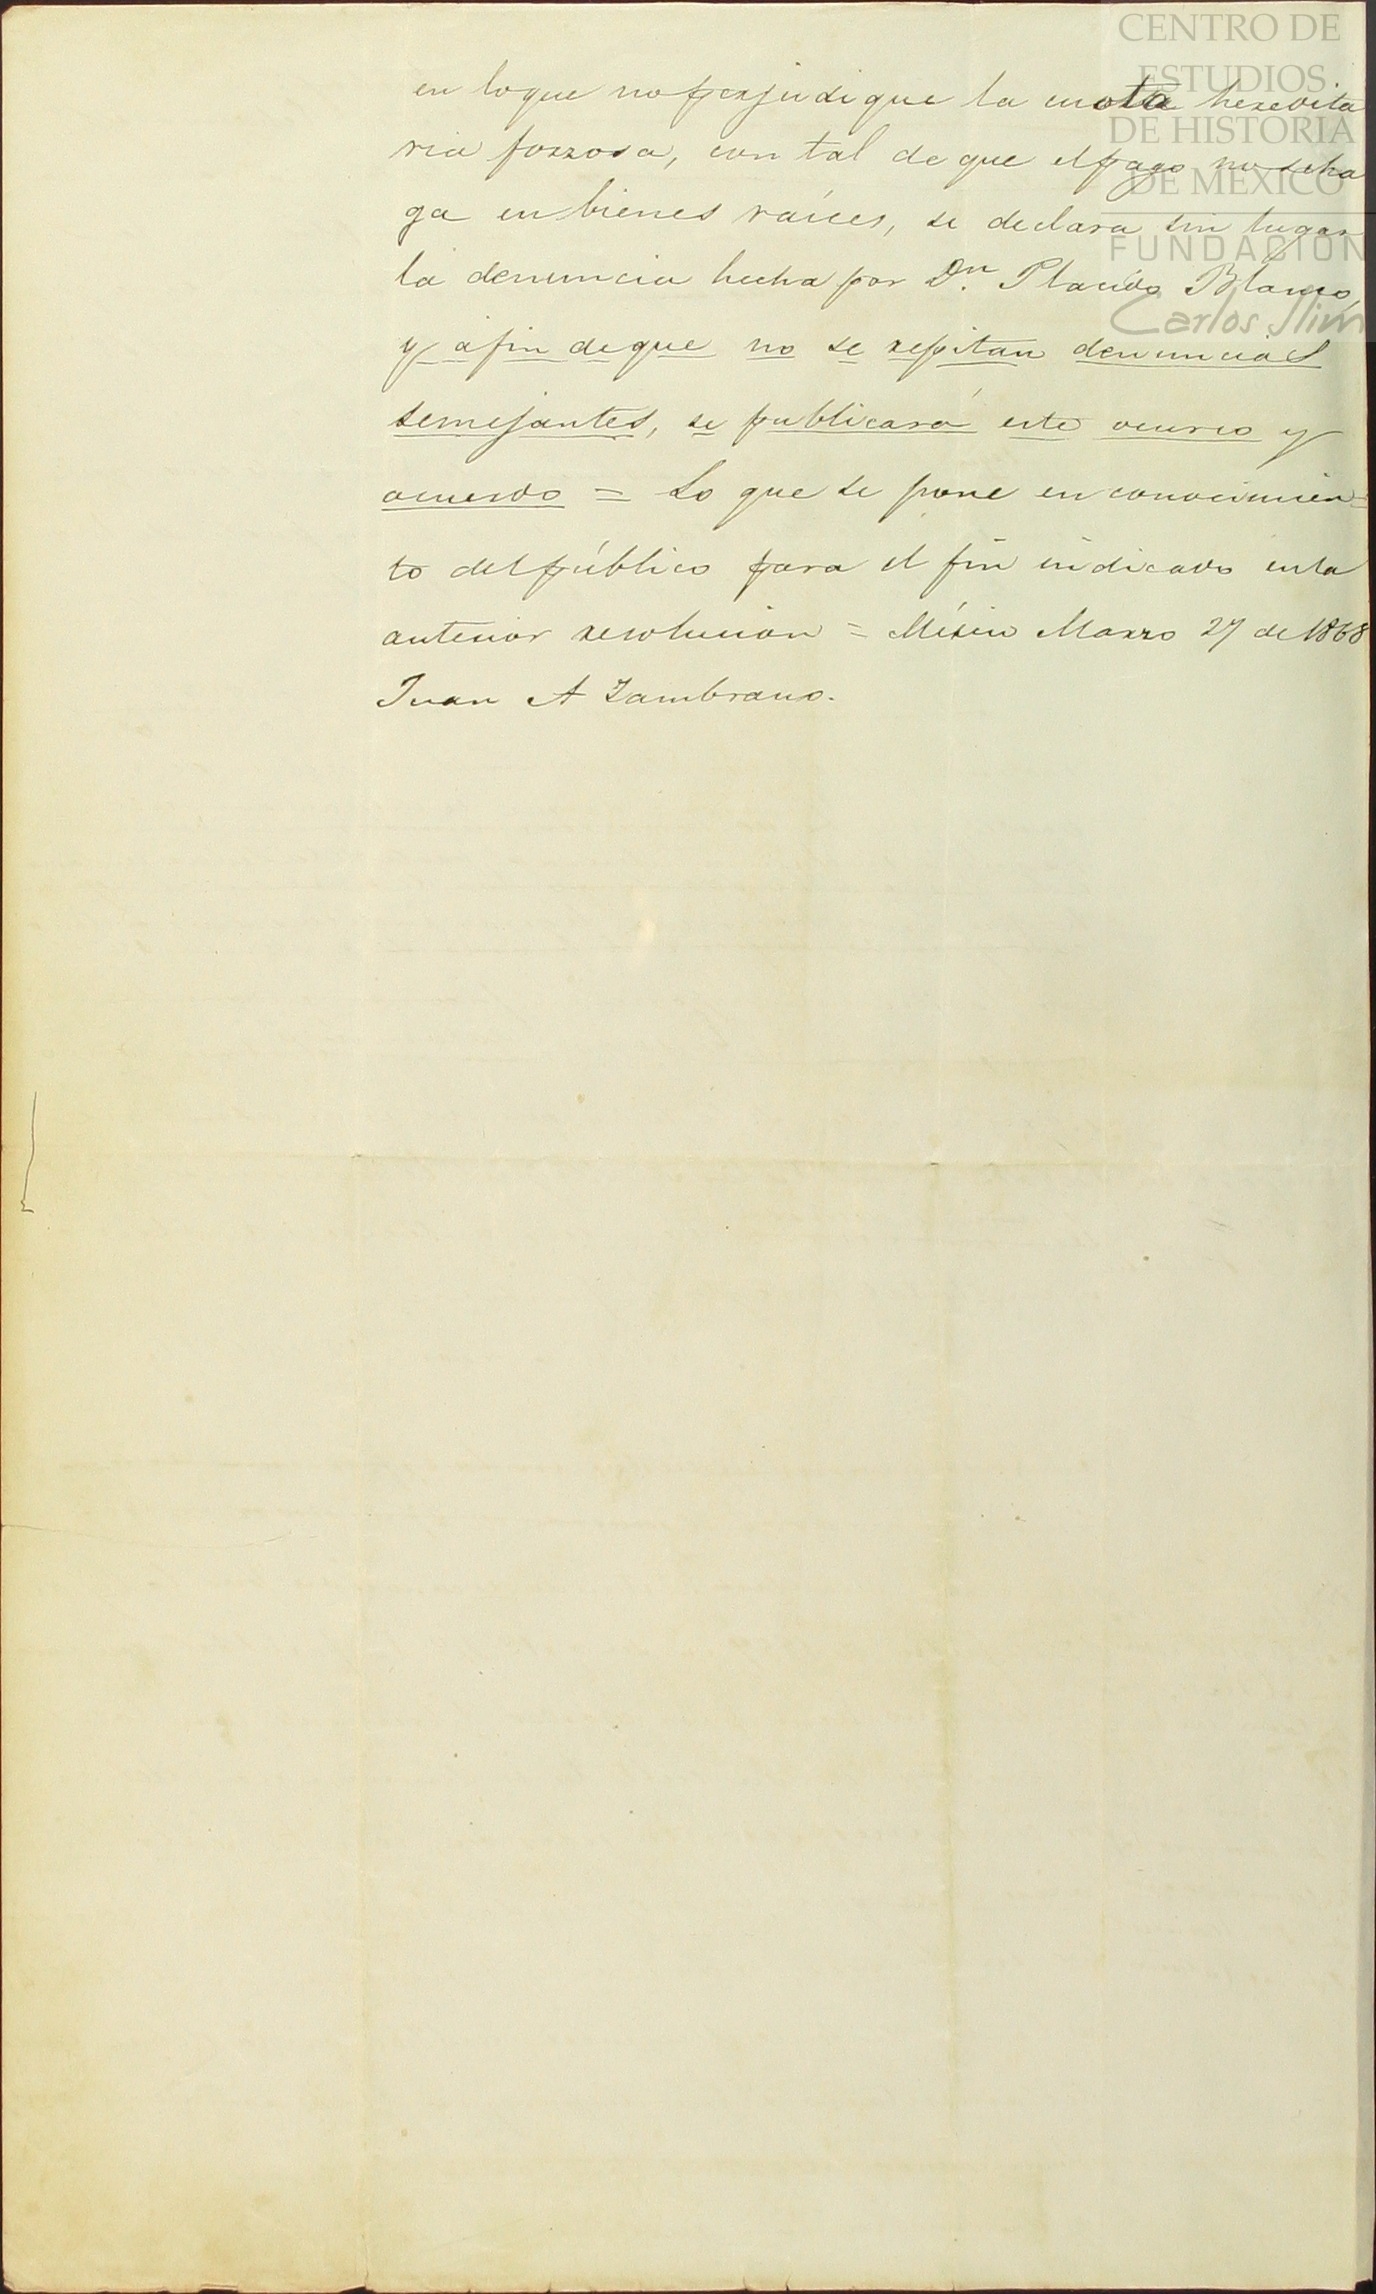 CENTRO DE
ESTUDIOS
DE HISTORIA
DE MÉXICO
FUNDACIÓN
Carlos Slim
en loque no perjudique la cuota heredita
ria forzosa, con tal de que el pago no se ha
ga en bienes raíces, se declara sin lugar
la denuncia hecha por Dn. Placido Blanco,
y afin deque no se repitan denuncias
semejantes, se publicará este ocurso y
acuerdo = Lo que se pone en conocimien=
to del público para el fin indicado enla
anterior resolucion = México Marzo 27 de 1868
Juan A Zambrano.